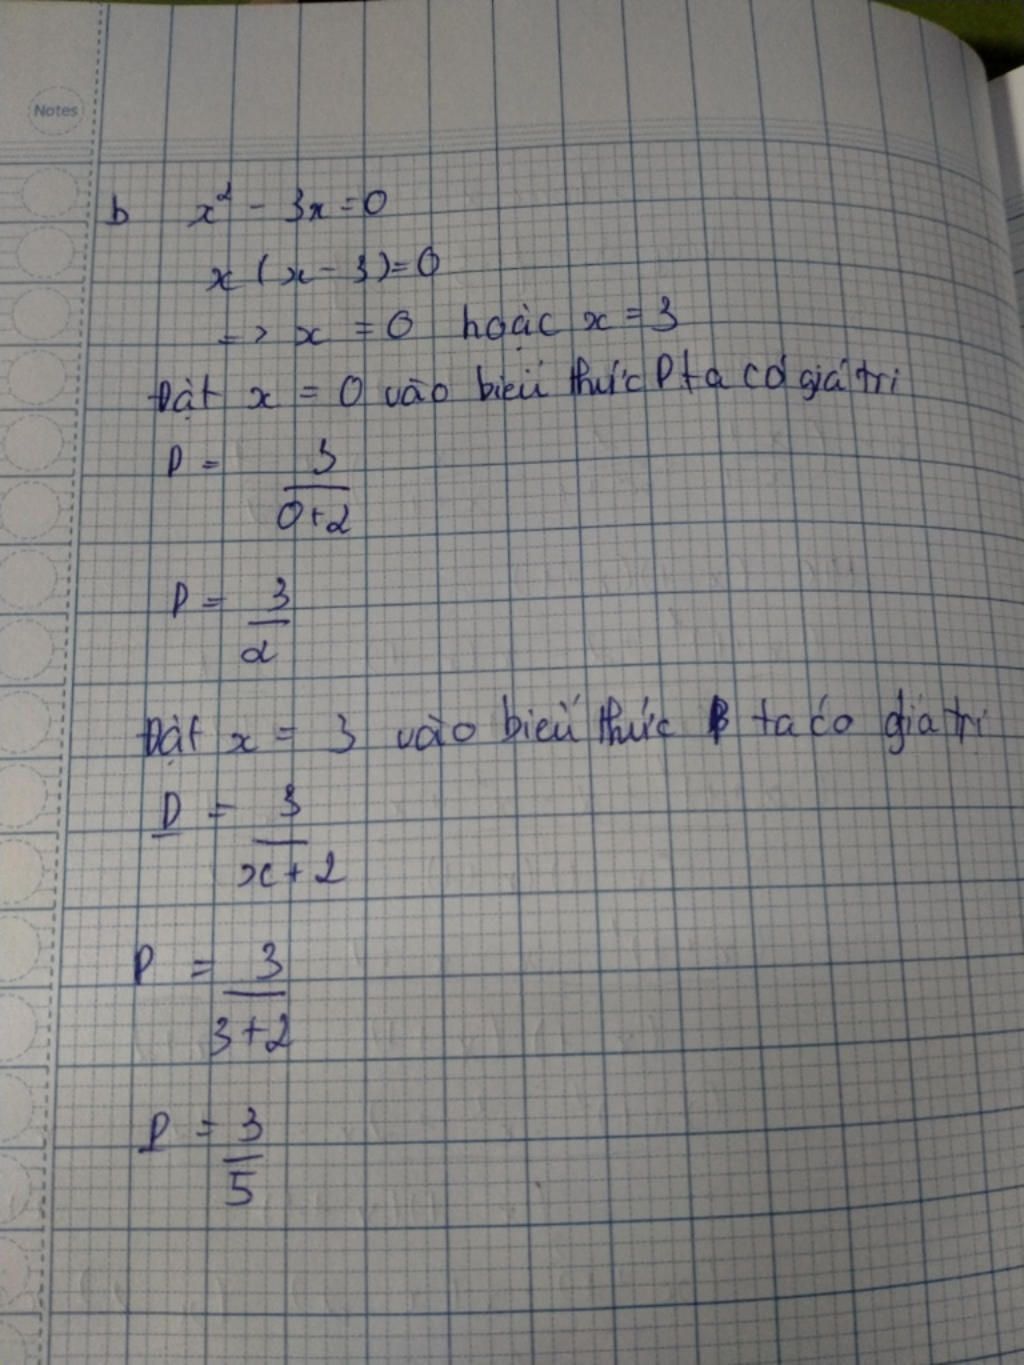 Notes
b x² - 3x = 0
x (x - 3) = 0
=> x = 0 hoặc x = 3
Đặt x = 0 vào biểu thức P ta có giá trị
P = 3/(0+2)
P = 3/2
Đặt x = 3 vào biểu thức P ta có giá trị
P = 3/(x+2)
P = 3/(3+2)
P = 3/5